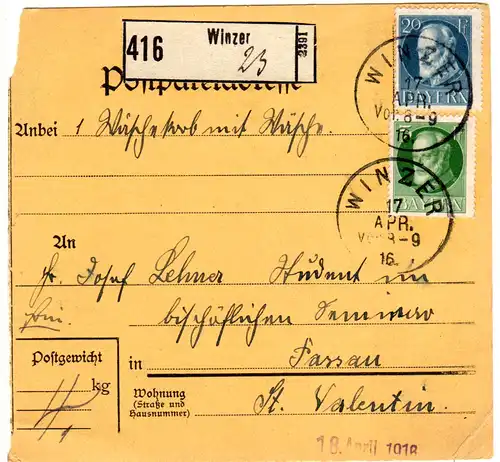 416
Winzer
23
2391
Postpaketadresse
20 Pf
BAYERN
WINZER
17
APR.
Vor. 8-9
16.
Anbei 1 Wäschekorb mit Wäsche.
BAYERN
WINZER
17
APR.
Vor. 8-9
16.
An
Hr. Josef Lehner Student im
frei.
bischöflichen Seminar
Postgewicht
in Passau
kg
Wohnung
(Straße und
Hausnummer)
St. Valentin.
18. April 1916